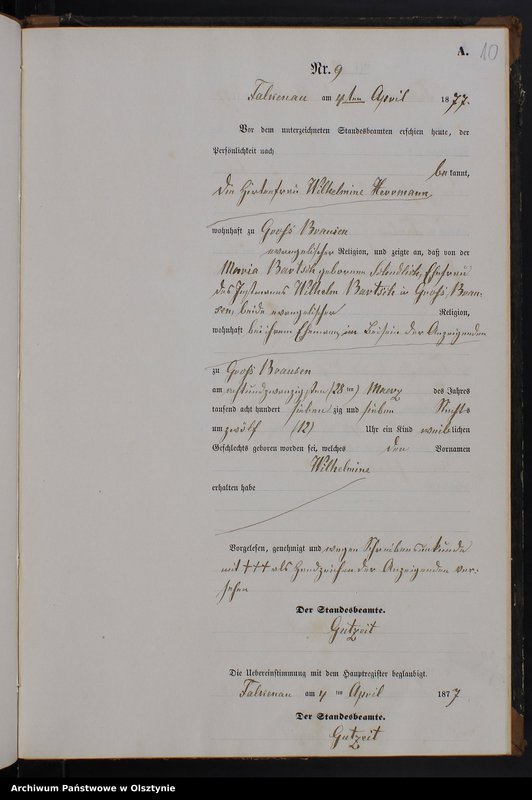 A. 10
Nr. 9
Falkenau am 4ten April 1877.
Vor dem unterzeichneten Standesbeamten erschien heute, der
Persönlichkeit nach
bekannt,
die Hirtenfrau Wilhelmine Herrmann,
wohnhaft zu Groß Brausen
evangelischer Religion, und zeigte an, daß von der
Maria Bartsch geborenen Ehefrau
des Instmanns Wilhelm Bartsch in Groß Brau-
sen, beide evangelischer Religion,
wohnhaft bei ihrem Ehemann, im Beisein der Anzeigenden
zu Groß Brausen
am achtundzwanzigsten (28ten) Maerz des Jahres
tausend acht hundert sieben zig und sieben Nachts
um zwölf (12) Uhr ein Kind weiblichen
Geschlechts geboren worden sei, welches den Vornamen
Wilhelmine
erhalten habe
Vorgelesen, genehmigt und wegen Schreibensunkunde
mit +++ als Handzeichen der Anzeigenden ver-
sehen
Der Standesbeamte.
Gutzeit
Die Uebereinstimmung mit dem Hauptregister beglaubigt.
Falkenau am 4 ten April 1877
Der Standesbeamte.
Gutzeit
Archiwum Państwowe w Olsztynie